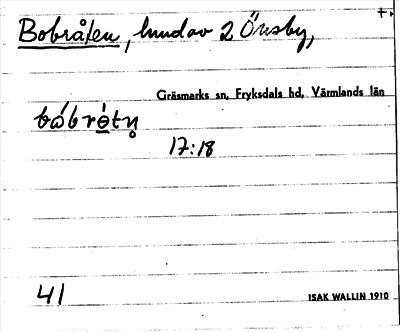 Bobråten, hmd av 2 Önsby,
Gräsmarks sn, Fryksdals hd, Värmlands län
17:18
41
ISAK WALLIN 1910